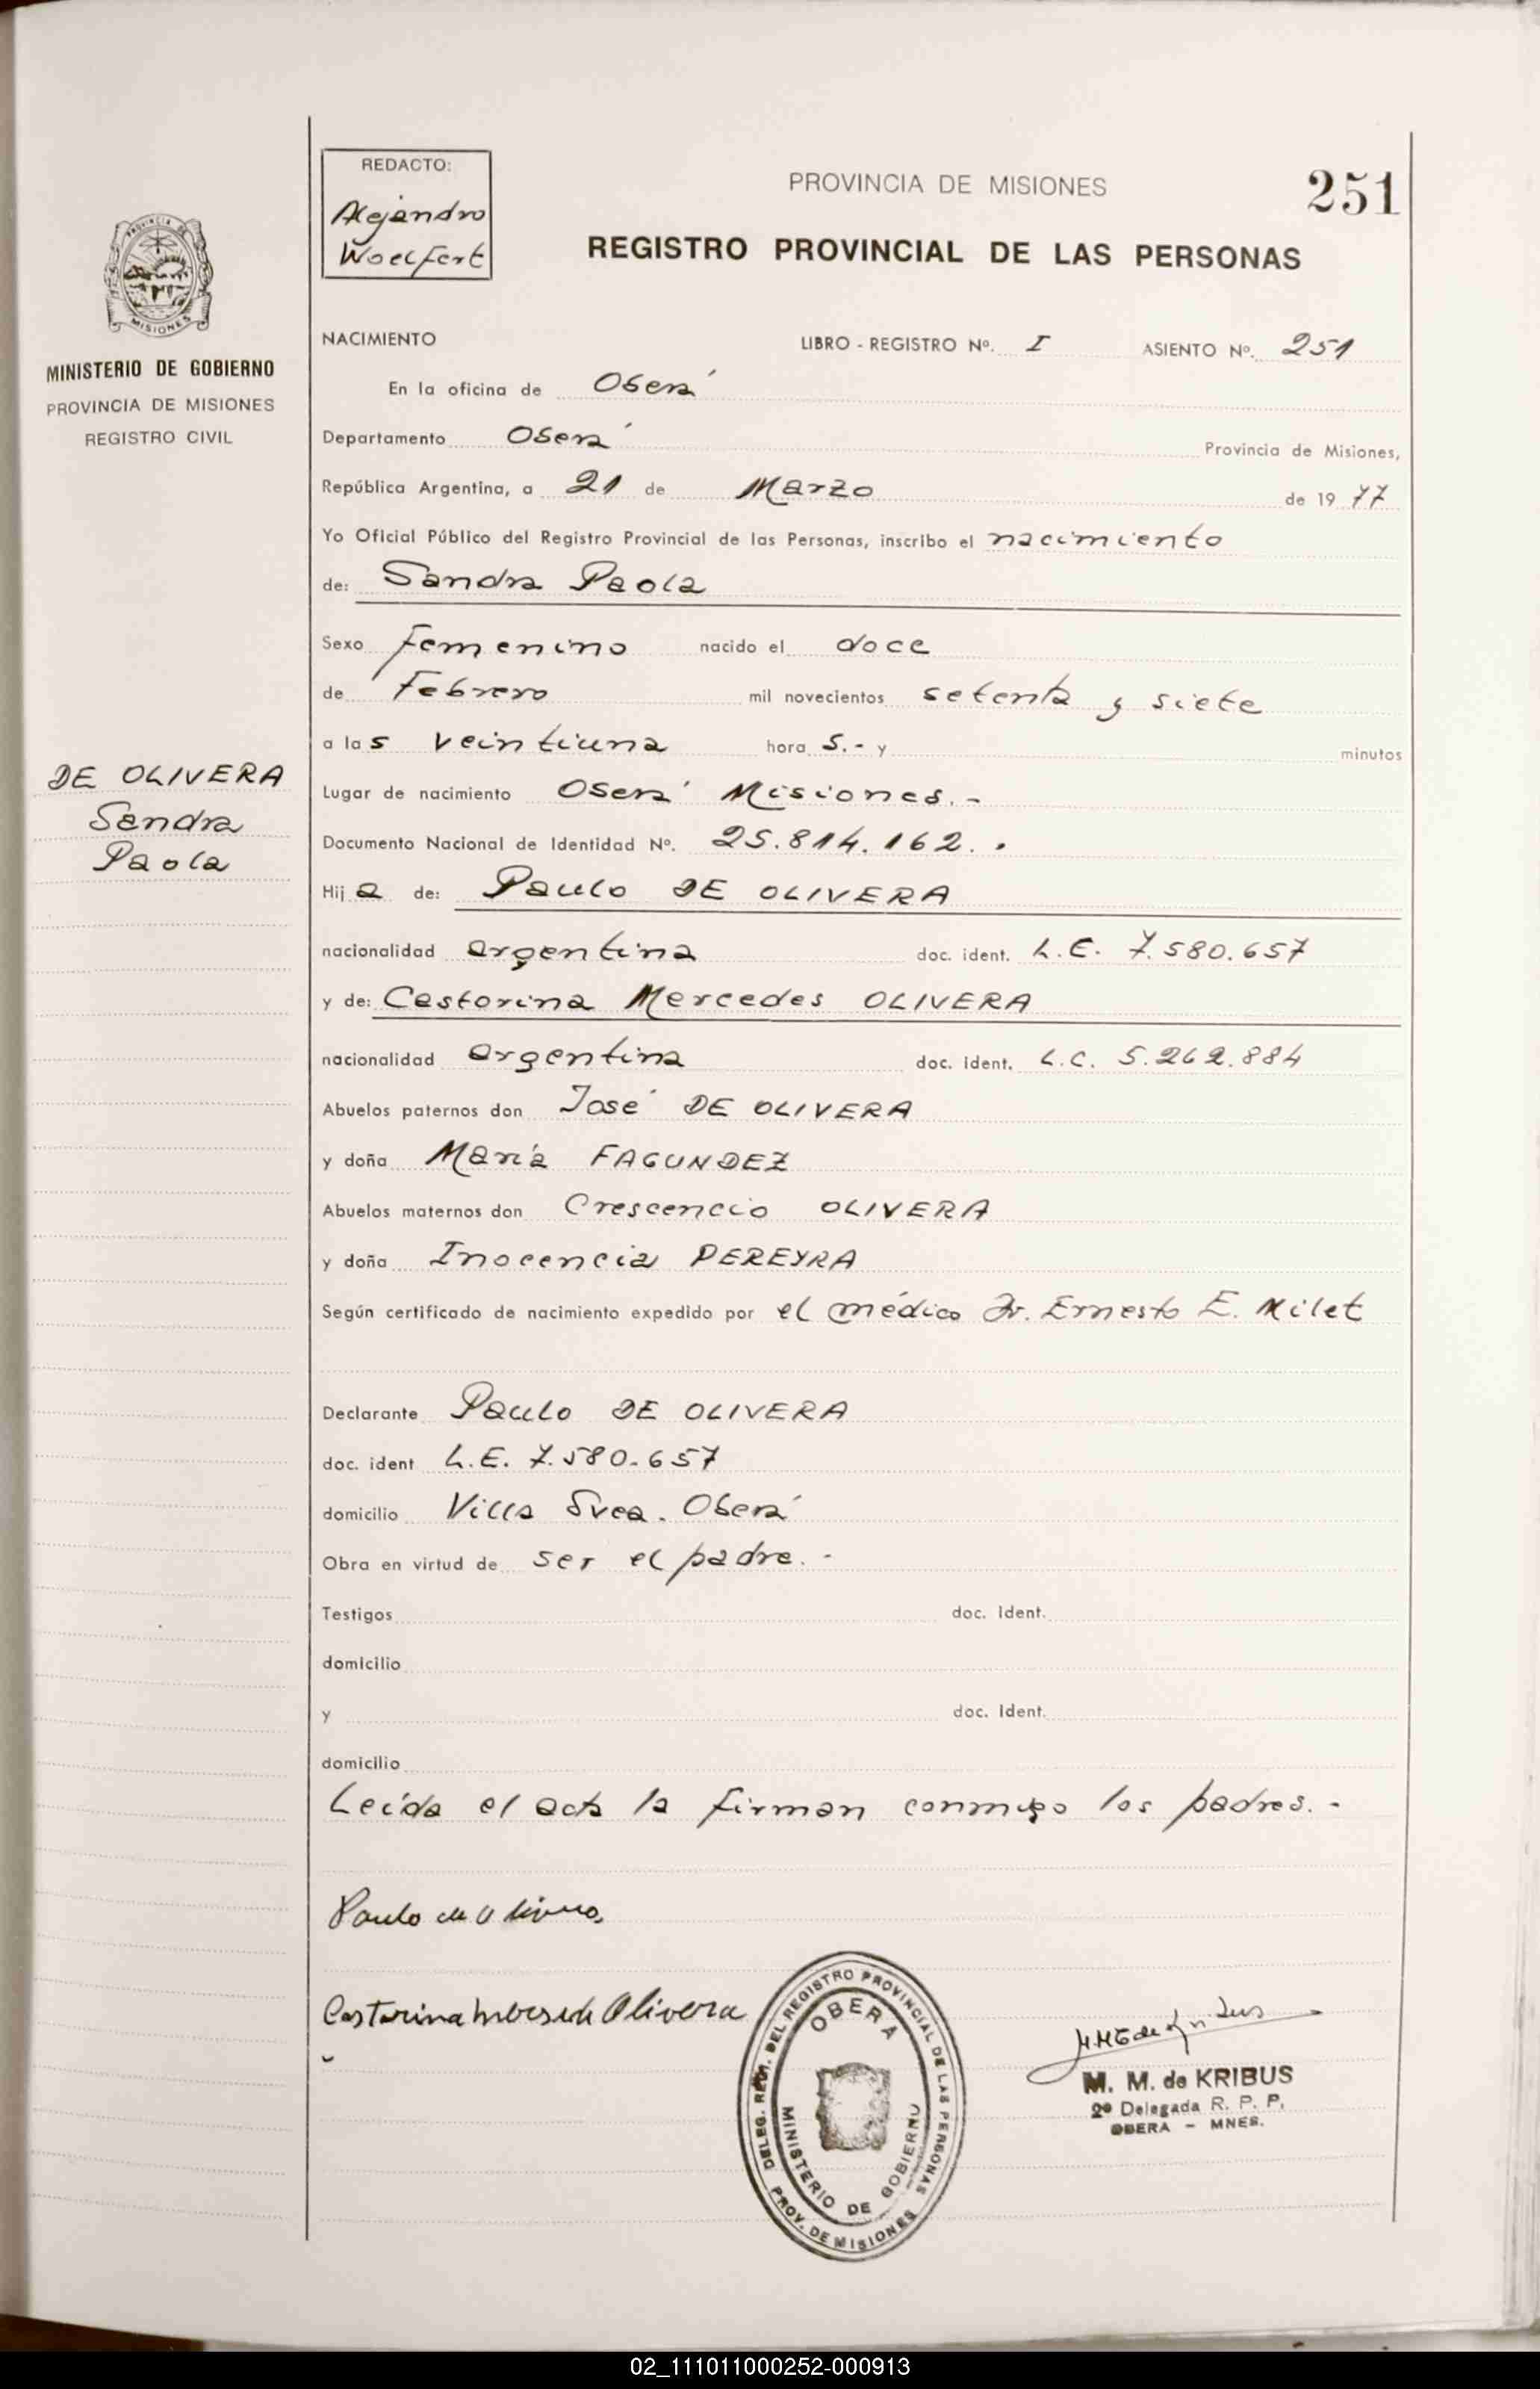 REDACTO:
Alejandro
Woelfert
PROVINCIA DE MISIONES
251
REGISTRO PROVINCIAL DE LAS PERSONAS
PROVINCIA DE
MISIONES
MINISTERIO DE GOBIERNO
PROVINCIA DE MISIONES
REGISTRO CIVIL
DE OLIVERA
Sandra
Paola
NACIMIENTO LIBRO - REGISTRO Nº. I ASIENTO Nº. 251
En la oficina de Oberá
Departamento Oberá Provincia de Misiones,
República Argentina, a 21 de Marzo de 19 77
Yo Oficial Público del Registro Provincial de las Personas, inscribo el nacimiento
de: Sandra Paola
Sexo femenino nacido el doce
de Febrero mil novecientos setenta y siete
a las veintiuna hora s.- y minutos
Lugar de nacimiento Oberá Misiones.-
Documento Nacional de Identidad Nº. 25.814.162.
Hija de: Paulo DE OLIVERA
nacionalidad argentina doc. ident. L.E. 7.580.657
y de: Castorina Mercedes OLIVERA
nacionalidad argentina doc. ident. L.C. 5.262.884
Abuelos paternos don José DE OLIVERA
y doña María FAGUNDEZ
Abuelos maternos don Crescencio OLIVERA
y doña Inocencia PEREYRA
Según certificado de nacimiento expedido por el médico Dr. Ernesto E. Milet
Declarante Paulo DE OLIVERA
doc. ident L.E. 7.580.657
domicilio Villa Svea. Oberá
Obra en virtud de ser el padre.-
Testigos doc. Ident.
domicilio
y doc. Ident.
domicilio
Leída el acta la firman conmigo los padres.-
Paulo de Olivera
Castorina Olivera
DELEG. REGI. DEL REGISTRO PROVINCIAL DE LAS PERSONAS
OBERA
MINISTERIO DE GOBIERNO
PROV. DE MISIONES
M. M. de KRIBUS
2º Delegada R. P. P.
OBERA - MNES.
02_111011000252-000913